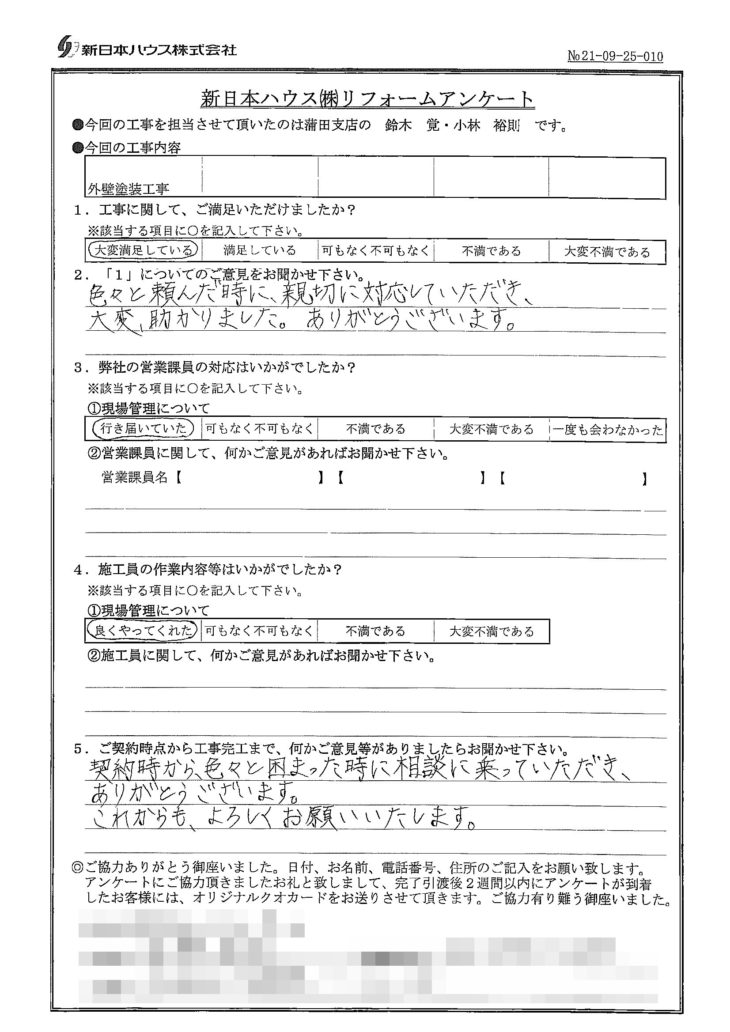 新日本ハウス株式会社
№21-09-25-010
新日本ハウス㈱リフォームアンケート
●今回の工事を担当させて頂いたのは蒲田支店の 鈴木 覚・小林 裕則 です。
●今回の工事内容
外壁塗装工事
1．工事に関して、ご満足いただけましたか？
※該当する項目に○を記入して下さい。
大変満足している 満足している 可もなく不可もなく 不満である 大変不満である
2．「1」についてのご意見をお聞かせ下さい。
色々と頼んだ時に、親切に対応していただき、
大変、助かりました。ありがとうございます。
3．弊社の営業課員の対応はいかがでしたか？
※該当する項目に○を記入して下さい。
①現場管理について
行き届いていた 可もなく不可もなく 不満である 大変不満である 一度も会わなかった
②営業課員に関して、何かご意見があればお聞かせ下さい。
営業課員名【 】【 】【 】
4．施工員の作業内容等はいかがでしたか？
※該当する項目に○を記入して下さい。
①現場管理について
良くやってくれた 可もなく不可もなく 不満である 大変不満である
②施工員に関して、何かご意見があればお聞かせ下さい。
5．ご契約時点から工事完工まで、何かご意見等がありましたらお聞かせ下さい。
契約時から、色々と困まった時に相談に乗っていただき、
ありがとうございます。
これからも、よろしくお願いいたします。
◎ご協力ありがとう御座いました。日付、お名前、電話番号、住所のご記入をお願い致します。
アンケートにご協力頂きましたお礼と致しまして、完了引渡後2週間以内にアンケートが到着
したお客様には、オリジナルクオカードをお送りさせて頂きます。ご協力有り難う御座いました。